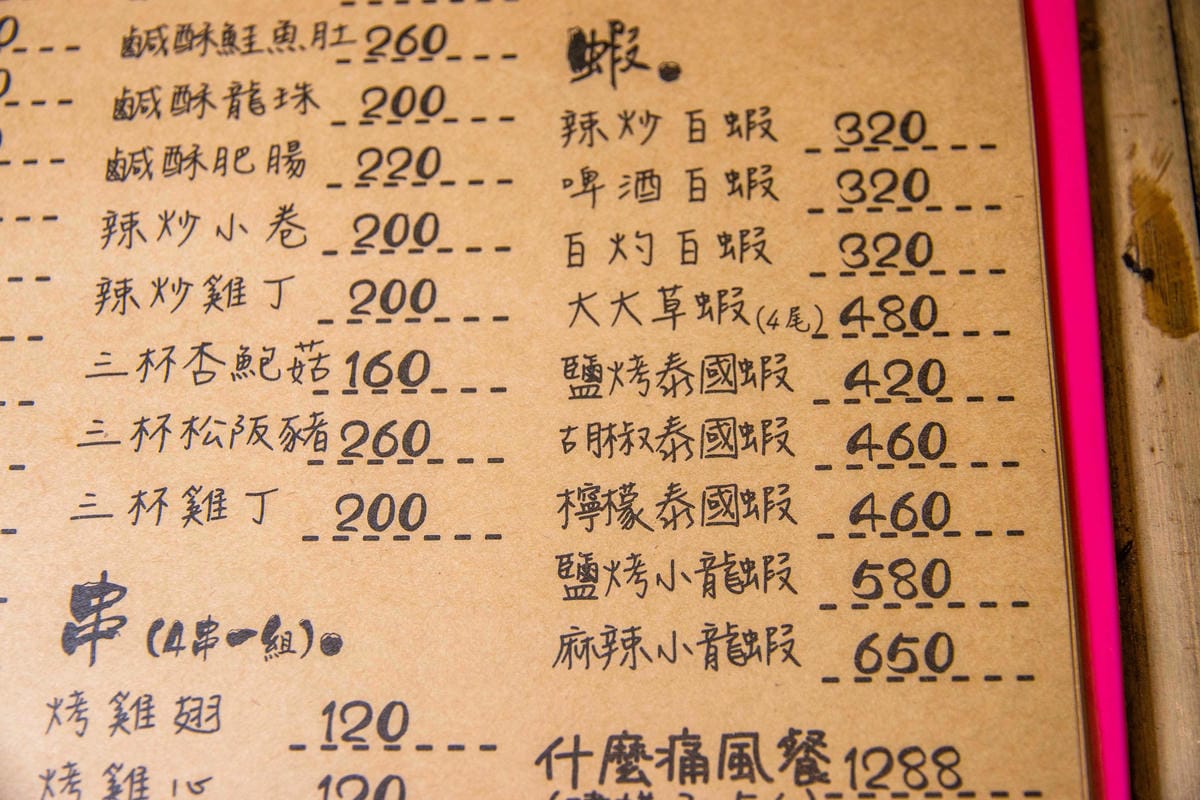 鹹酥鮭魚肚 260
鹹酥龍珠 200
鹹酥肥腸 220
辣炒小卷 200
辣炒雞丁 200
三杯杏鮑菇 160
三杯松阪豬 260
三杯雞丁 200
串(4串一組)
烤雞翅 120
烤雞心 120
蝦
辣炒白蝦 320
啤酒白蝦 320
白灼白蝦 320
大大草蝦(4尾) 480
鹽烤泰國蝦 420
胡椒泰國蝦 460
檸檬泰國蝦 460
鹽烤小龍蝦 580
麻辣小龍蝦 650
什麼痛風餐 1288